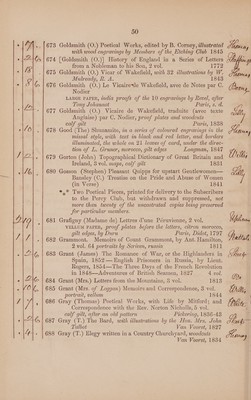 30
673 Goldsmith (O.) Poetical Works, edited by B. Corney, illustrated
with wood engravings by Members of the Etching Club 1845
674 [Goldsmith (O.)] History of England in a Series of Letters
from a Nobleman to his Son, 2 vol. 1772
675 Goldsmith (O.) Vicar of Wakefield, with 32 illustrations by W.
Mulready, R. A. 1843
676 Goldsmith (O.) Le Vicaire de Wakefield, avec de Notes par C.
Nodier
LARGE PAPER, india proofs of the 10 engravings by Revel, after
Tony Johannot Paris, s. d.
677 Goldsmith (O.) Vicaire de Wakefield, traduite (avec texte
Anglaise) par C. Nodier, proof plates and woodcuts
calf gilt Paris, 1838
678 Good (The) Shunamite, in a series of coloured engravings in the
missal style, with text in black and red letter, and borders
illuminated, the whole on 21 leaves of card, under the direc-
tion of L. Gruner, morocco, gilt edges Longman, 1847
679 Gorton (John) Topographical Dictionary of Great Britain and
Ireland, 3 vol. maps, calf gilt 1831
680 Gosson (Stephen) Pleasant Quippes for upstart Gentlewomen—
Bansley (C.) Treatise on the Pride and Abuse of Women
(in Verse) 1841
*** Two Poetical Pieces, printed for delivery to the Subscribers
to the Percy Club, but withdrawn and suppressed, not
more than twenty of the uncastrated copies being preserved
for particular members
681 Grafigny (Madame de) Lettres d'une Péruvienne, 2 vol.
VELLUM PAPER, proof plates before the letters, citron morocco,
gilt edges, by Duru Paris, Didot, 1797
682 Grammont. Memoirs of Count Grammont, by Ant. Hamilton,
2 vol. 64 portraits by Scriven, russia 1811
683 Grant (James) The Romance of War, or the Highlanders in
Spain, 1852—English Prisoners in Russia, by Lieut.
Rogers, 1854—The Three Days of the French Revolution
in 1848—Adventures of British Seamen, 1827 4 vol.
684 Grant (Mrs.) Letters from the Mountains, 3 vol. 1813
685 Grant (Mrs. of Laggan) Memoirs and Correspondence, 3 vol.
portrait, uniform 1844
686 Gray (Thomas) Poetical Works, with Life by Mitford; and
Correspondence with the Rev. Norton Nicholls, 5 vol.
calf gilt, after an old pattern Pickering, 1835-43
687 Gray (T.) The Bard, with illustrations by the Hon. Mrs. John
Talbot Van Voorst, 1837
688 Gray (T.) Elegy written in a Country Churchyard, woodcuts
Van Voorst, 1834